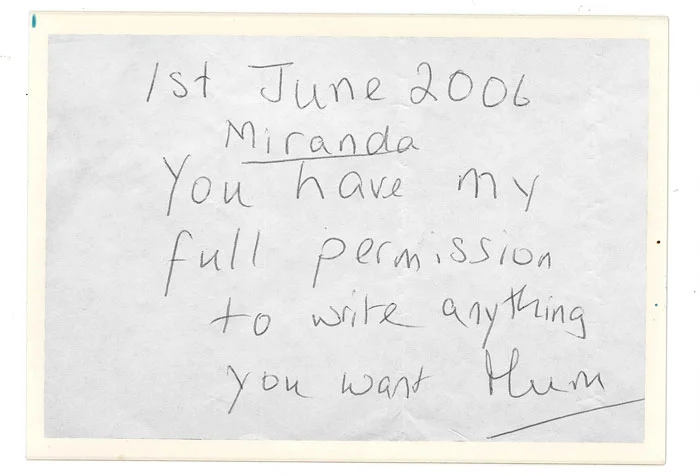 1st June 2006
Miranda
You have my
full permission
to write anything
you want Mum